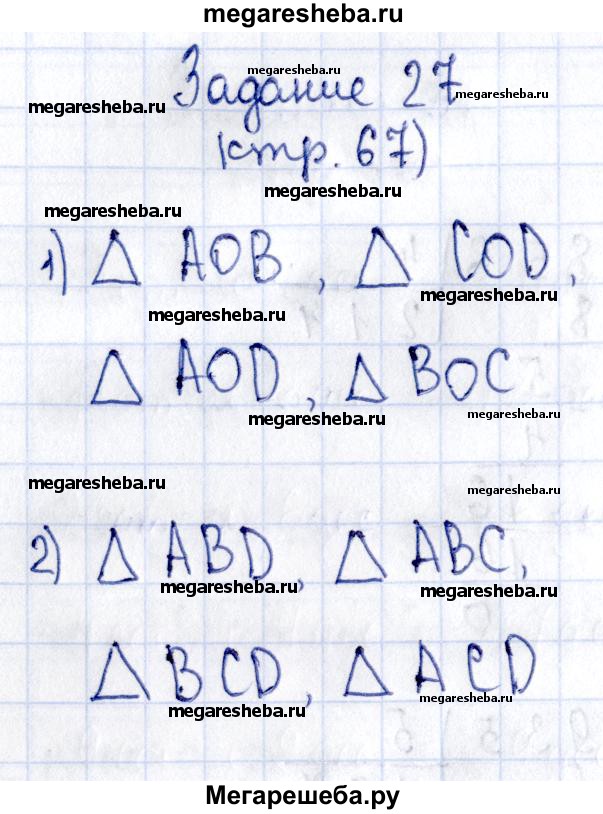 megaresheba.ru
Задание 27
megaresheba.ru
megaresheba.ru
megaresheba.ru
(стр. 67)
megaresheba.ru
megaresheba.ru
1) △ AOB, △ COD,
megaresheba.ru
megaresheba.ru
△ AOD, △ BOC
megaresheba.ru
megaresheba.ru
megaresheba.ru
megaresheba.ru
2) △ ABD, △ ABC,
megaresheba.ru
megaresheba.ru
△ BCD, △ ACD
megaresheba.ru
megaresheba.ru
Мегарешеба.ру